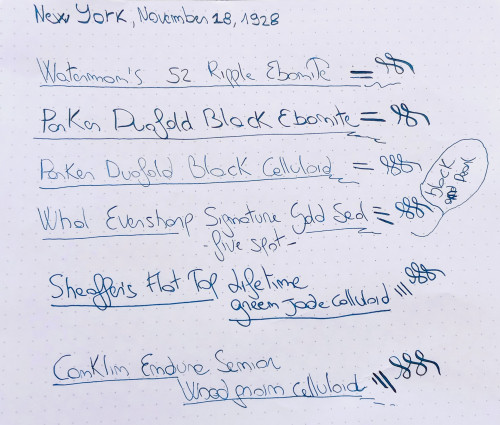 New York, November 28, 1928
Waterman's 52 Ripple Ebonite
Parker Duofold Black Ebonite
Parker Duofold Black Celluloid
Whal Eversharp Signature Gold Seal
- five spot -
black and Pearl
Sheaffer's Flat Top Lifetime
green Jade celluloid
Conklin Endura Senior
Wood grain celluloid